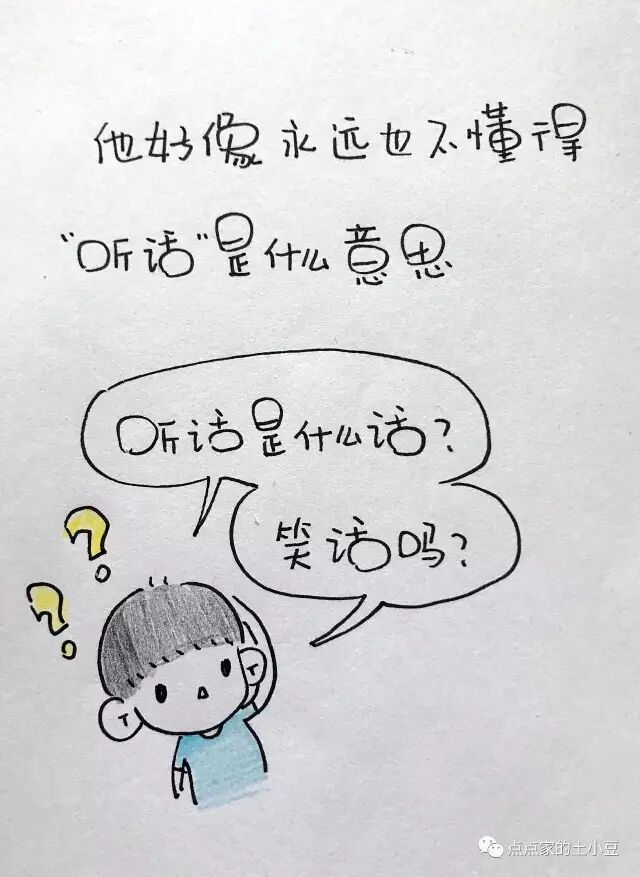 他好像永远也不懂得
“听话”是什么意思
听话是什么话？
笑话吗？
点点家的土小豆